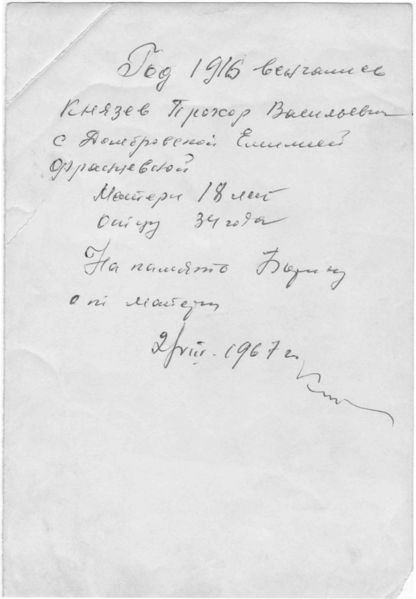 Год 1916 венчались
Князев Прохор Васильевич
с Домбровской Емилией
Францевской
Матери 18 лет
Отцу 34 года
На память Борису
от матери
2/VIII. 1967 г.